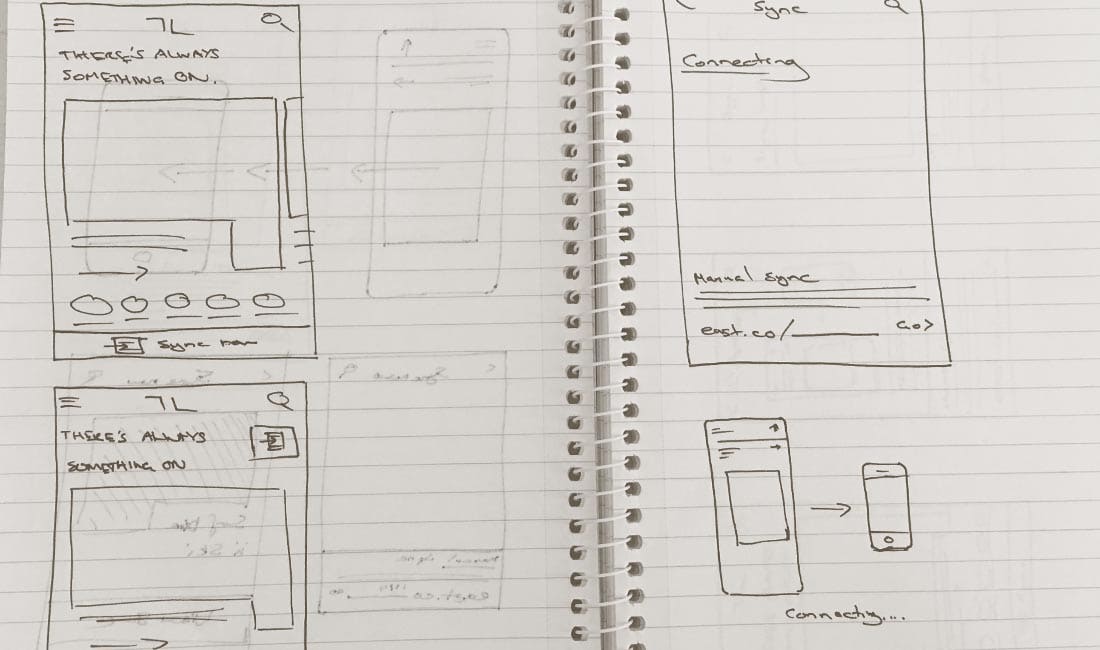 THERE'S ALWAYS
SOMETHING ON.
Sync now
THERE'S ALWAYS
SOMETHING ON
Sync
Connecting
Manual Sync
east.co/ Go>
Connecting....